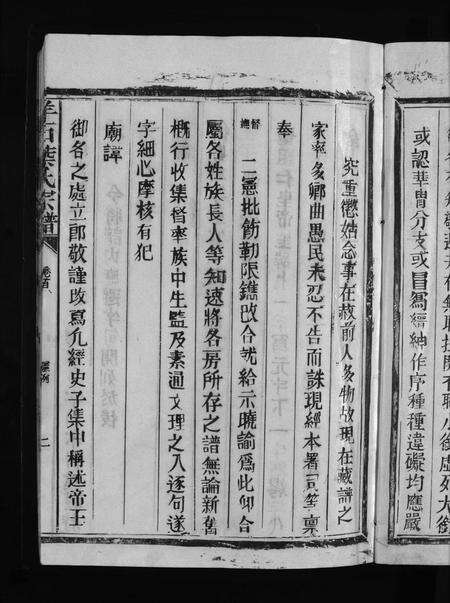 或認華胄分支或冒為縉紳作序種種違礙均應嚴
究重懲姑念事在赦前人多物故現在藏譜之
家率多鄉曲愚民未忍不告而誅現經本署司等稟
奉
督 撫 二憲批飭勒限鐫改合就給示曉諭為此仰合
屬各姓族長人等知速將各房所存之譜無論新舊
概行收集督率族中生監及素通文理之人逐句逐
字細心摩核有犯
廟諱
御名之處立即敬謹改寫凡經史子集中稱述帝王
葉氏宗譜
卷首
二